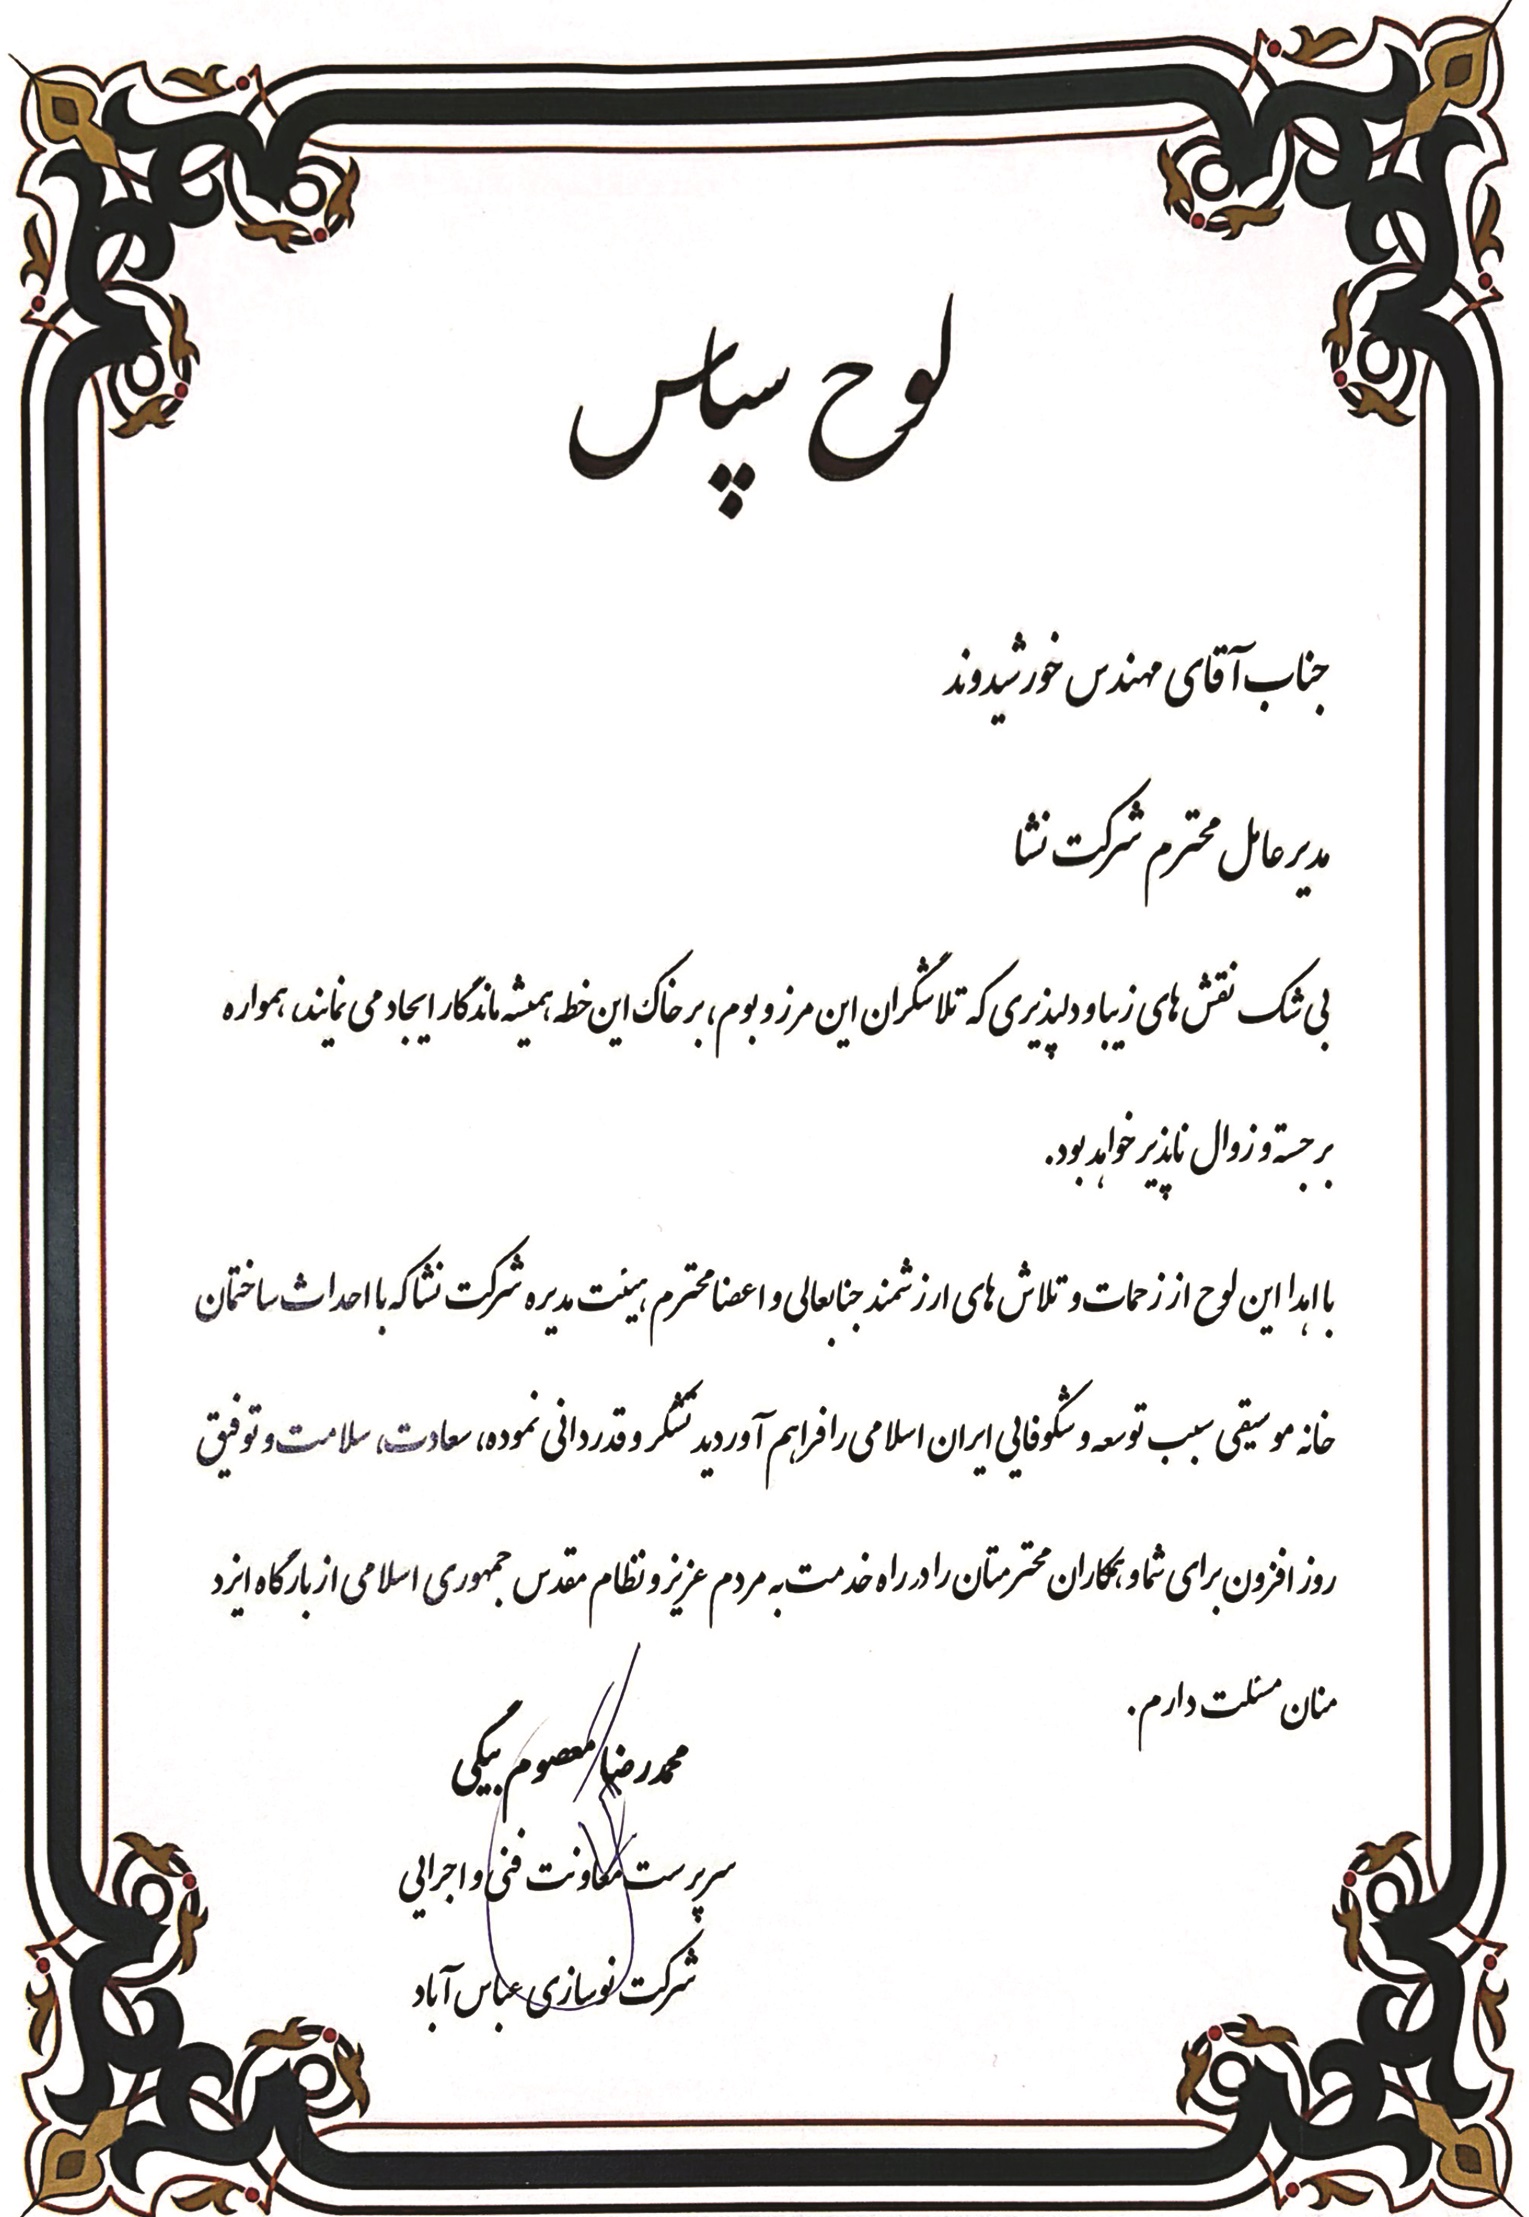 لوح سپاس
جناب آقای مهندس خورشیدوند
مدیر عامل محترم شرکت نشا
بی شک نقش های زیبا و دلپذیری که تلاشگران این مرز و بوم، بر خاک این خطه همیشه ماندگار ایجاد می نمایند، همواره
برجسته و زوال ناپذیر خواهد بود.
با اهدا این لوح از زحمات و تلاش های ارزشمند جنابعالی و اعضا محترم هیئت مدیره شرکت نشا که با احداث ساختمان
خانه موسیقی سبب توسعه و شکوفایی ایران اسلامی را فراهم آوردید تشکر و قدردانی نموده، سعادت، سلامت و توفیق
روز افزون برای شما و همکاران محترمتان را در راه خدمت به مردم عزیز و نظام مقدس جمهوری اسلامی از بارگاه ایزد
منان مسئلت دارم.
محمدرضا معصوم بیگی
سرپرست معاونت فنی و اجرایی
شرکت نوسازی عباس آباد